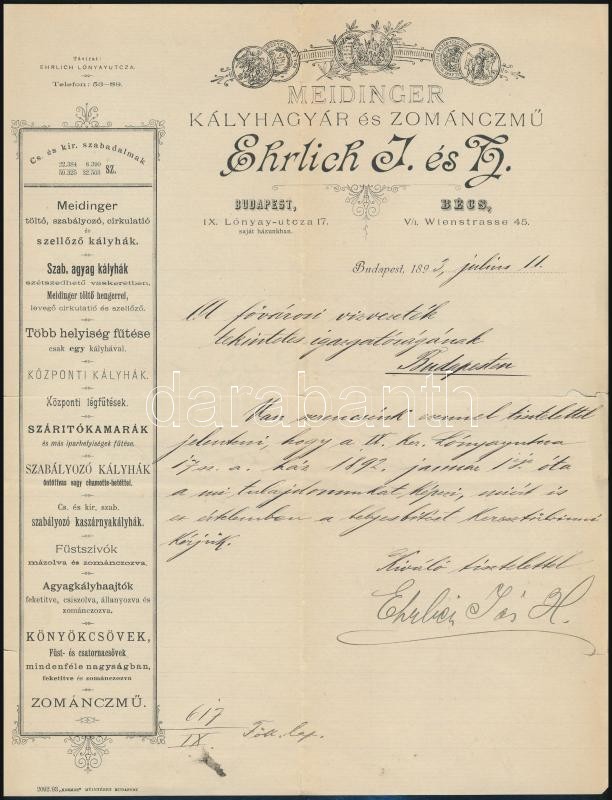 Távirat:
EHRLICH LÓNYAYUTCZA.
Telefon: 53—89.
MEIDINGER
KÁLYHAGYÁR és ZOMÁNCZMŰ
Ehrlich J. és H.
BUDAPEST,
IX. Lónyay-utcza 17.
saját házunkban.
BÉCS,
V/1. Wienstrasse 45.
Cs. és kir. szabadalmak
22.384 8.390
59.325 22.503 SZ.
Meidinger
töltő, szabályozó, cirkulatió
és
szellőző kályhák.
Szab. agyag kályhák
szétszedhető vaskeretben,
Meidinger töltő hengerrel,
levegő cirkulatió és szellőző.
Több helyiség fűtése
csak egy kályhával.
KÖZPONTI KÁLYHÁK.
Központi légfűtések.
SZÁRITÓKAMARÁK
és más iparhelyiségek fűtése.
SZABÁLYOZÓ KÁLYHÁK
öntöttvas vagy chamotte-betéttel.
Cs. és kir. szab.
szabályozó kaszárnyakályhák.
Füstszivók
mázolva és zománczozva.
Agyagkályhaajtók
feketitve, csiszolva, állanyozva és
zománczozva.
KÖNYÖKCSÖVEK,
Füst- és csatornacsövek
mindenféle nagyságban,
feketitve és zománczozva
ZOMÁNCZMŰ.
Budapest, 1893, július 11.
A fővárosi vizvezeték
tekintetes igazgatóságának
Budapesten
Van szerencsénk ezennel tisztelettel
jelenteni, hogy a IX. Ker. Lónyayutcza
17 sz. a. ház 1892. január 1 óta
a mi tulajdonunkat képezi, miért is
ez értelemben a helyesbitést keresztülvinni
kérjük.
Kiváló tisztelettel
Ehrlich J és H.
617
IX.
darabanth
2092.93 „KOSMOS" MŰINTÉZET BUDAPEST